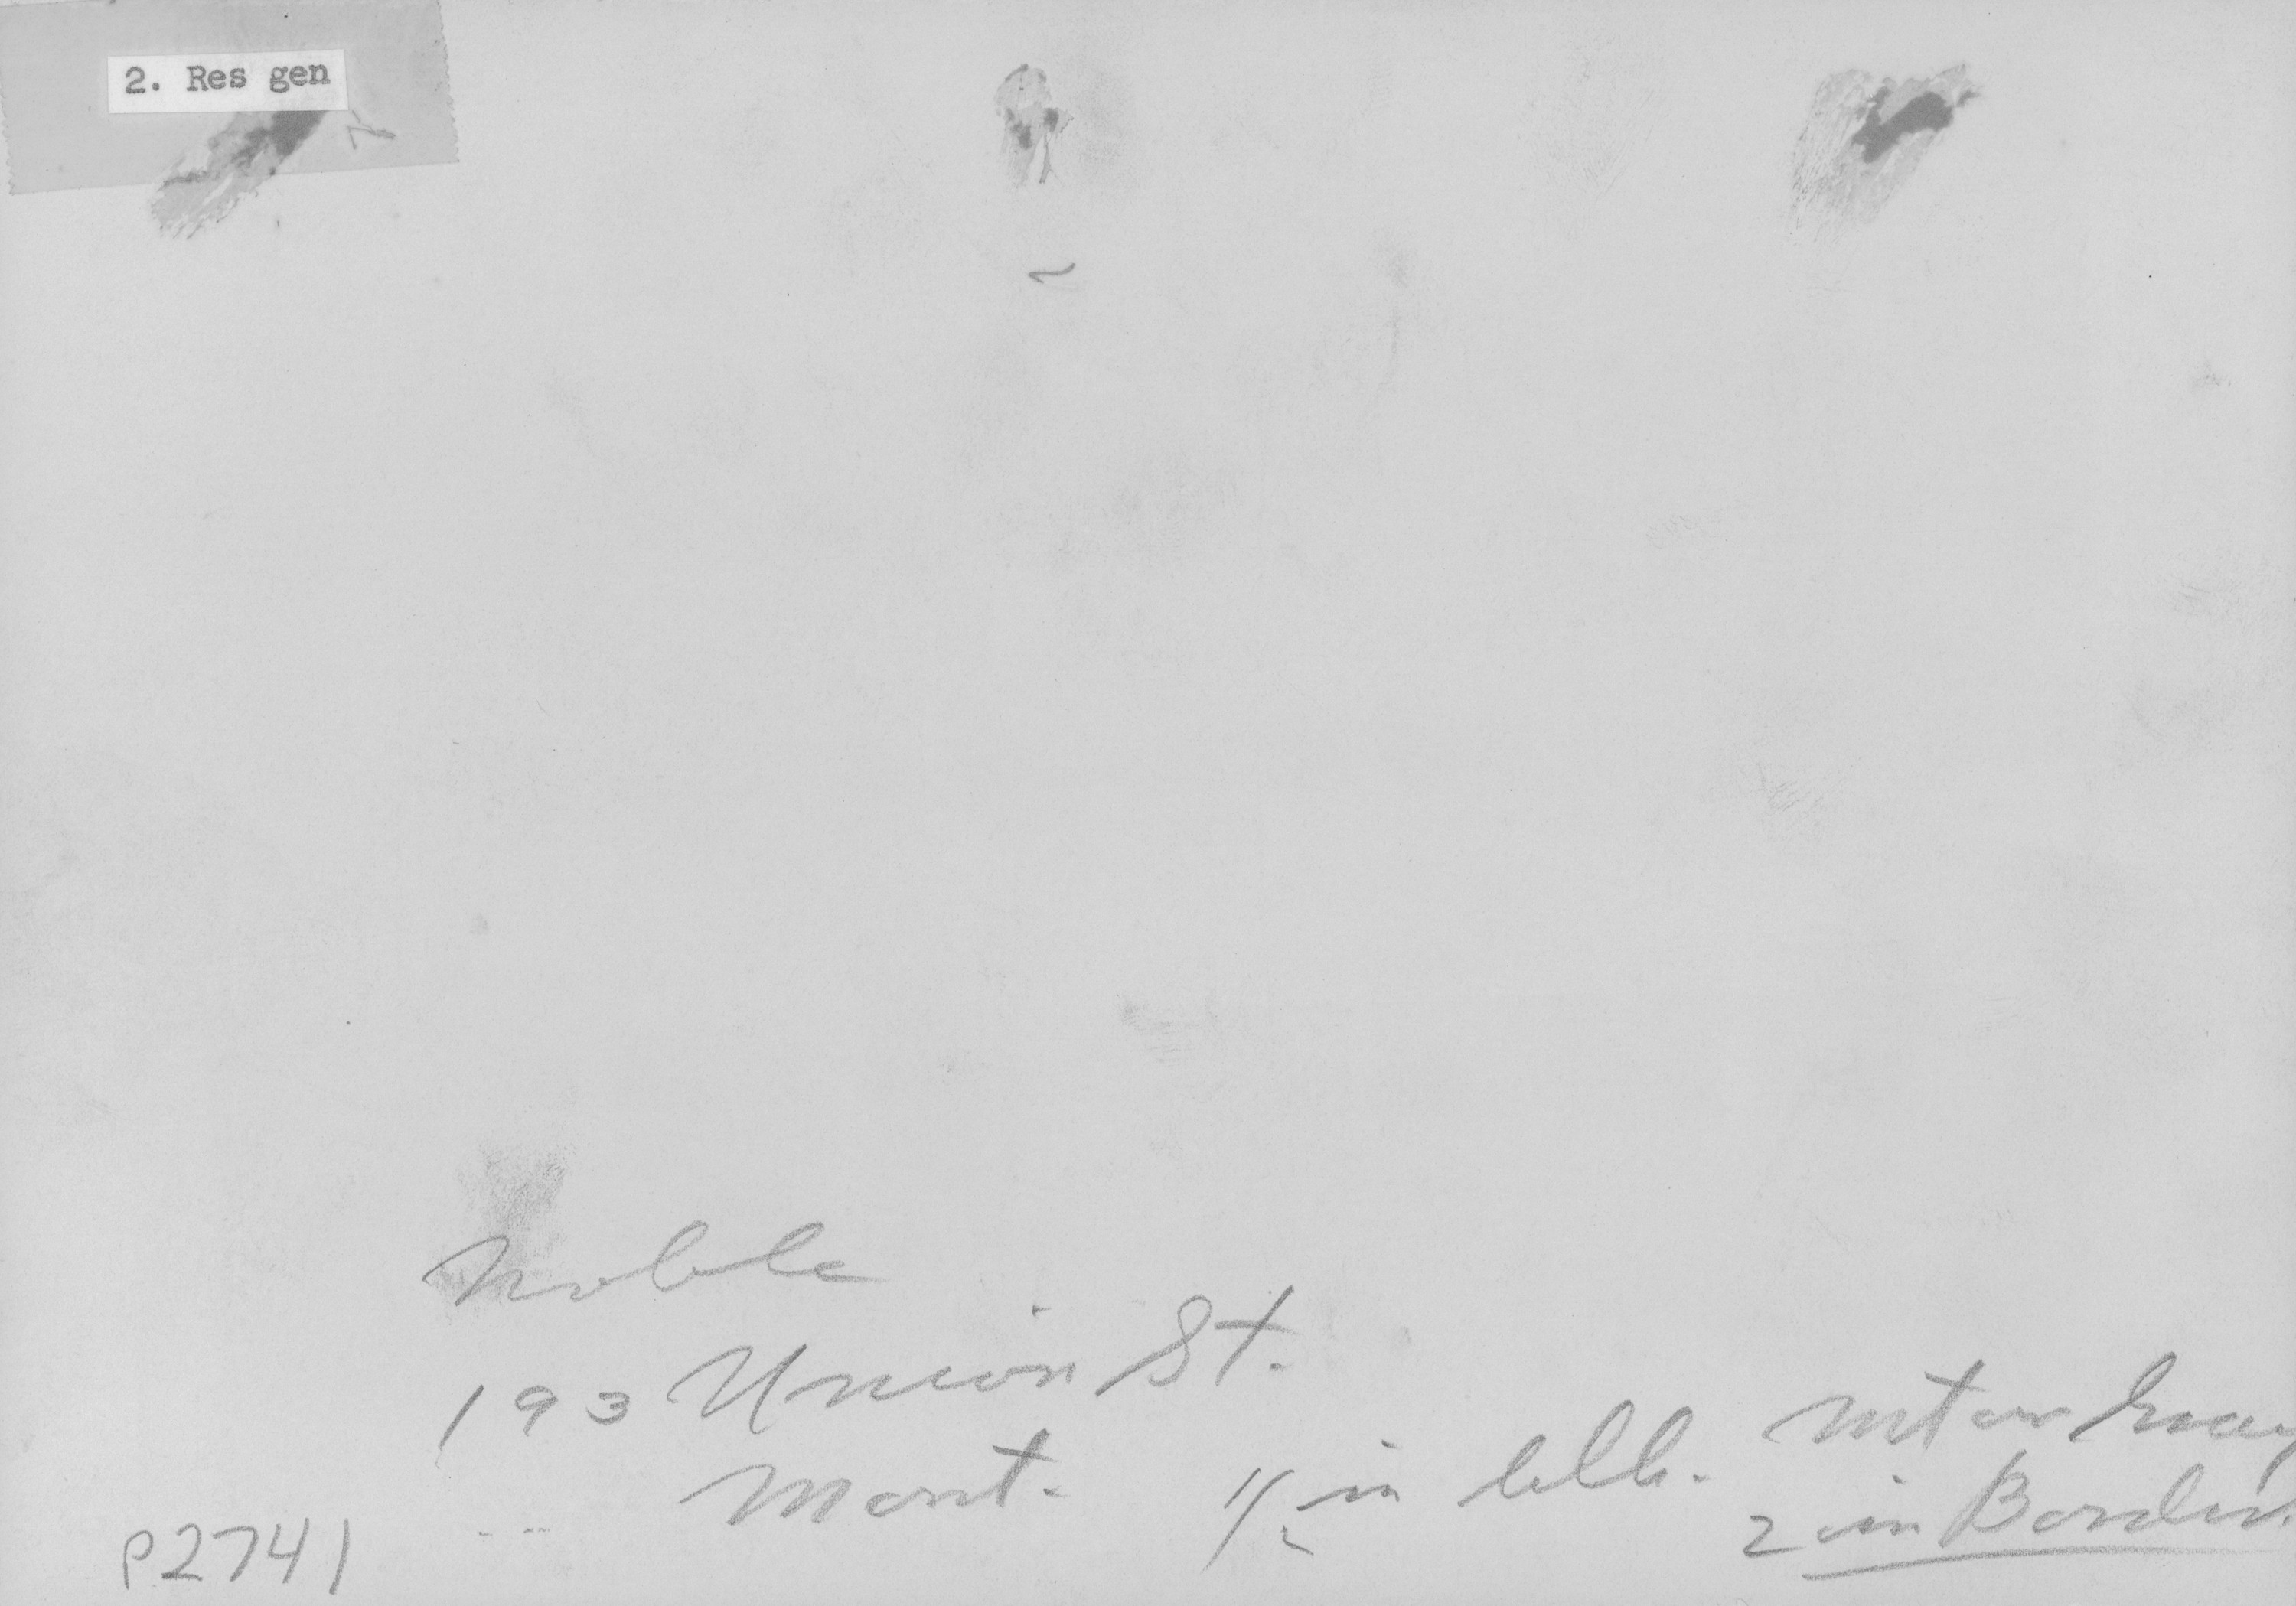 2. Res gen
Noble
193 Union St.
Mont.
1/2 in blk. Mt on Gray
2 in Border.
P2741